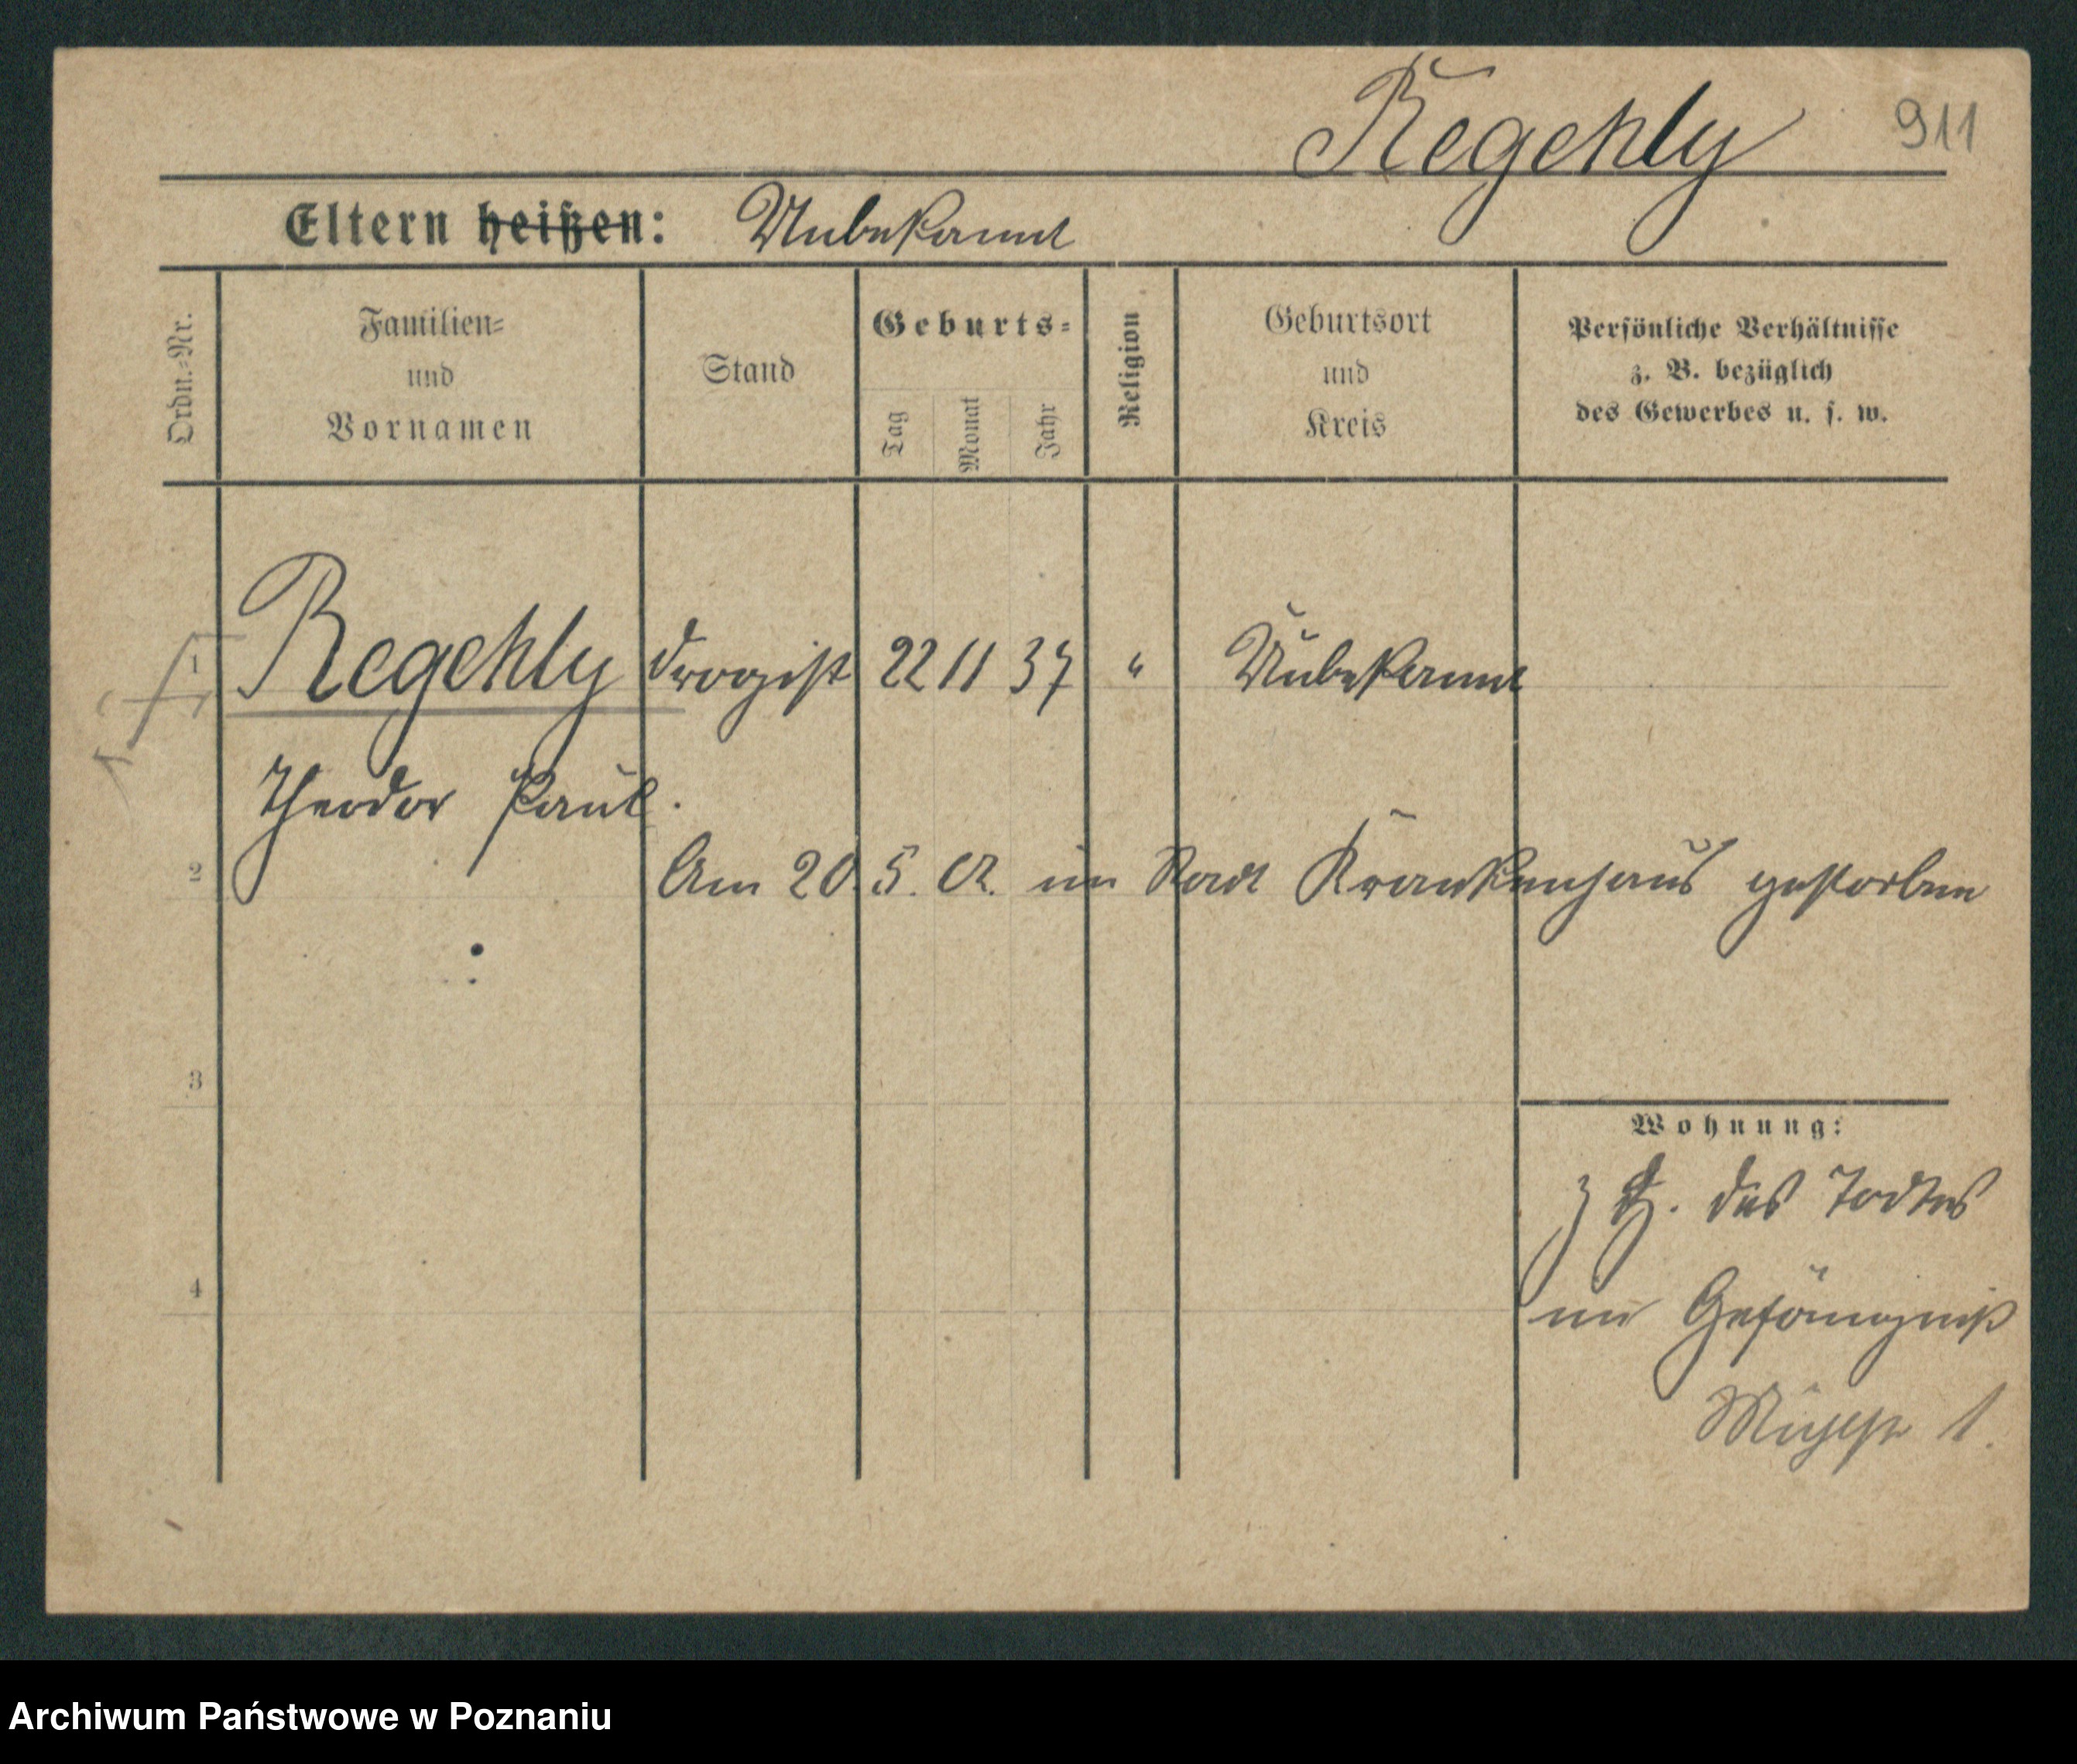 Regehly 911
Eltern heißen: Unbekannt
Ordn.=Nr.
Familien=
und
Vornamen
Stand
Geburts=
Tag
Monat
Jahr
Religion
Geburtsort
und
Kreis
Persönliche Verhältnisse
z. B. bezüglich
des Gewerbes u. s. w.
1 Regehly Drogist 22 11 37 " Unbekannt
Theodor Paul.
2 Am 20. 5. 02. im Stadt Krankenhaus gestorben
3
Wohnung:
z Z. des Todtes
4 im Gefängniß
1.
Archiwum Państwowe w Poznaniu